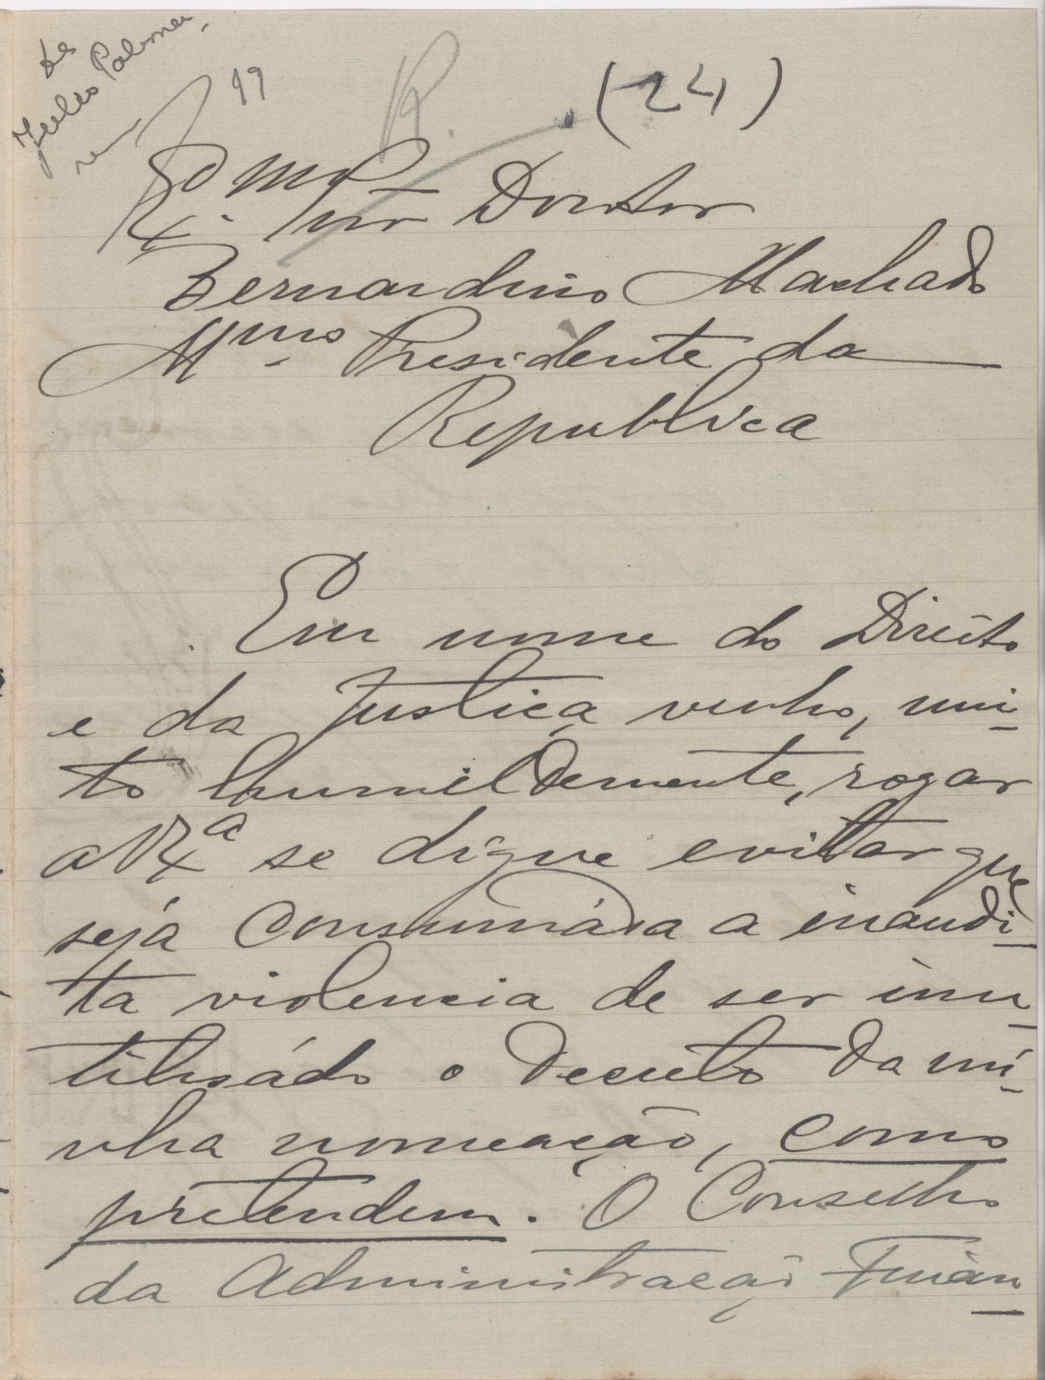 de
Julio Palmei
99 R. (24)
Exmo Snr Doutor
Bernardino Machado
Mmo Presidente da
Republica
Em nome do Direito
e da Justiça venho, mui-
to humildemente, rogar
a V Exa se digne evitar que
sejá consumáda a inaudi-
ta violencia de ser inu-
tilisádo o Decreto da mi-
nha nomeação, como
pretendem. O Conselho
da Administração Finan-